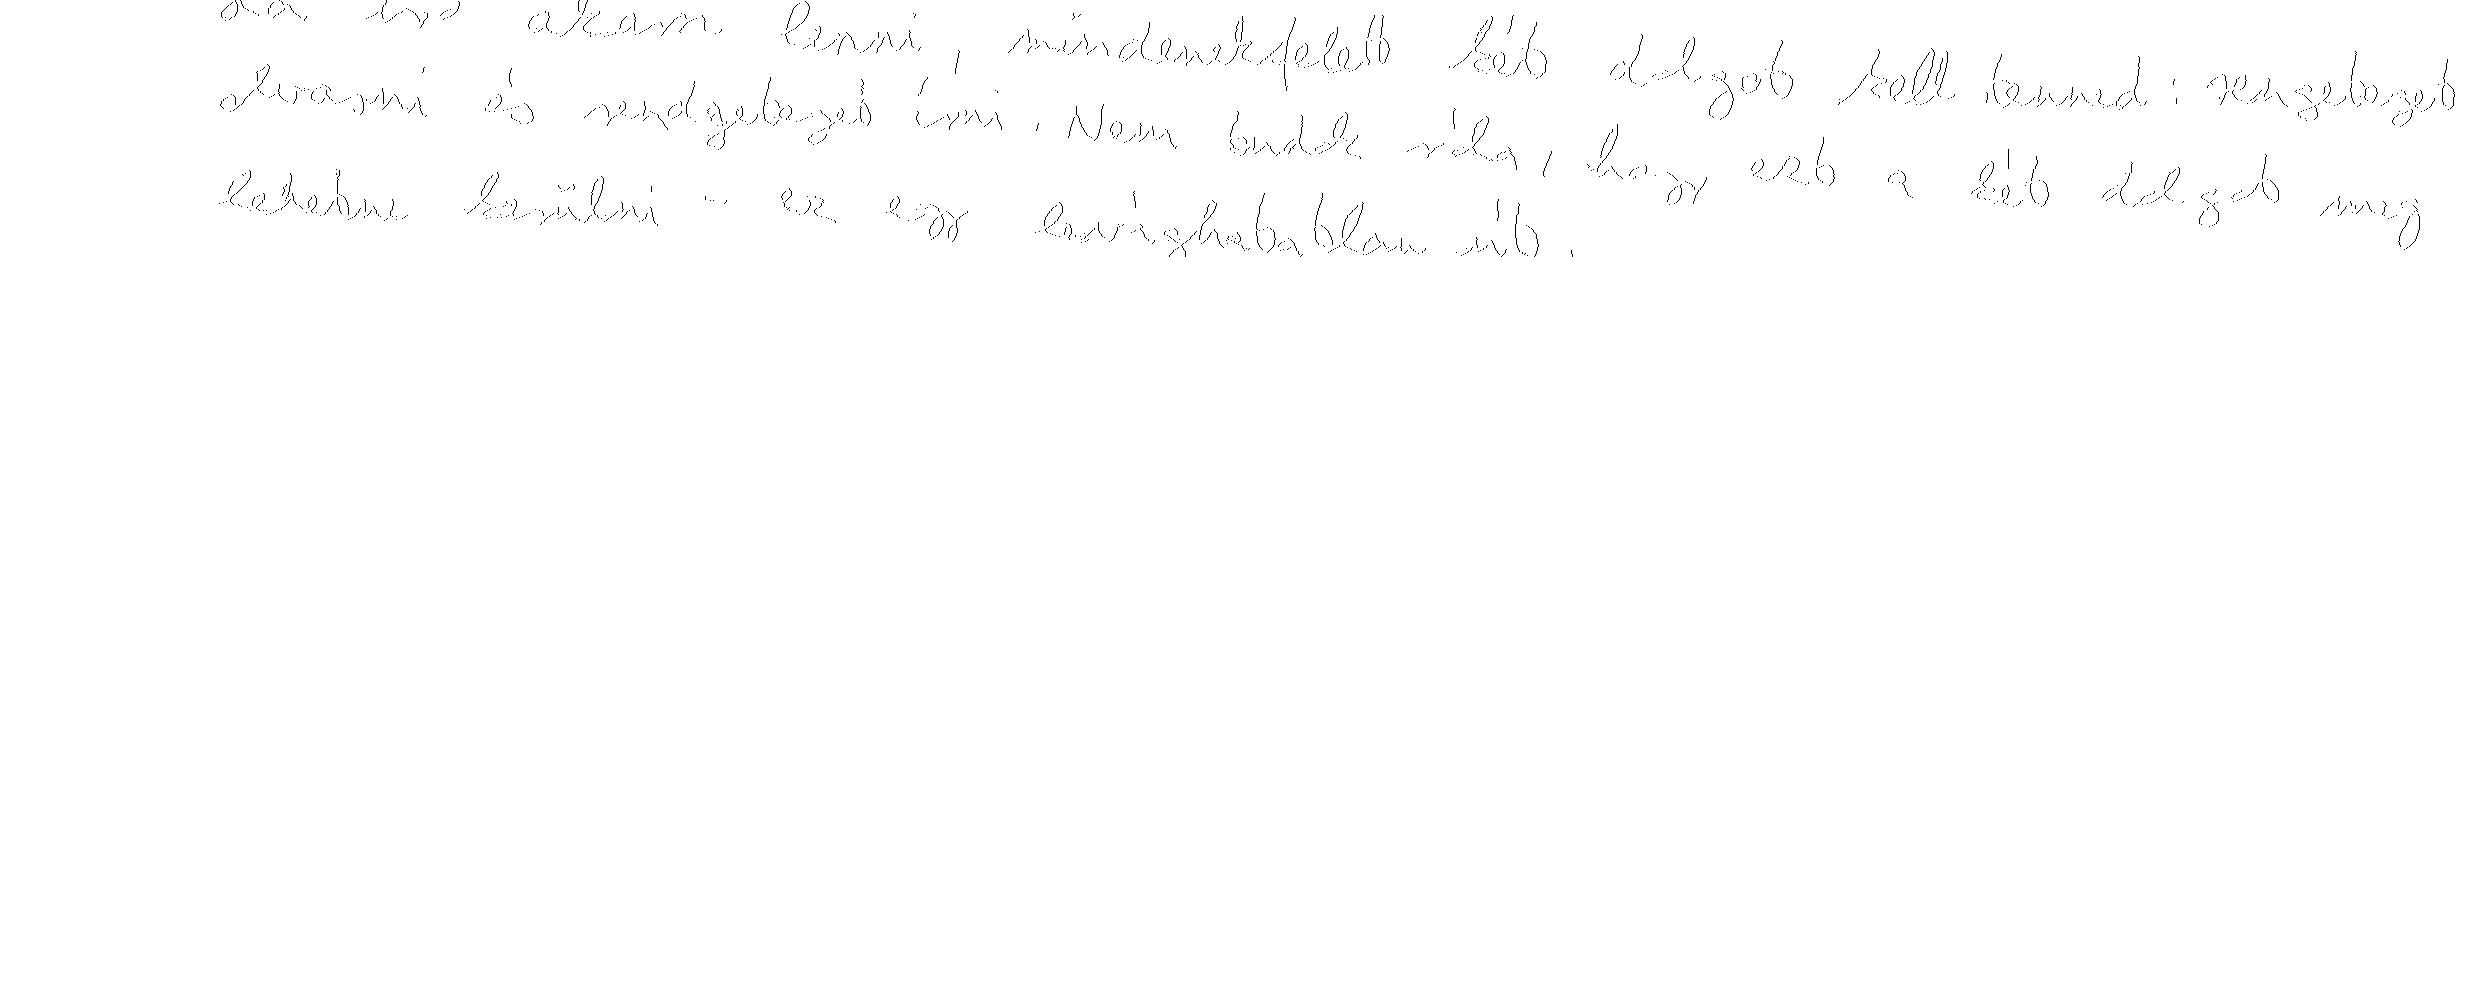 Ha író akarsz lenni, mindenekfelett két dolgot kell tenned: rengeteget
olvasni és rendgeteget írni. Nem tudok róla, hogy ezt a két dolgot meg
lehetne kerülni - ez egy levághatatlan út.